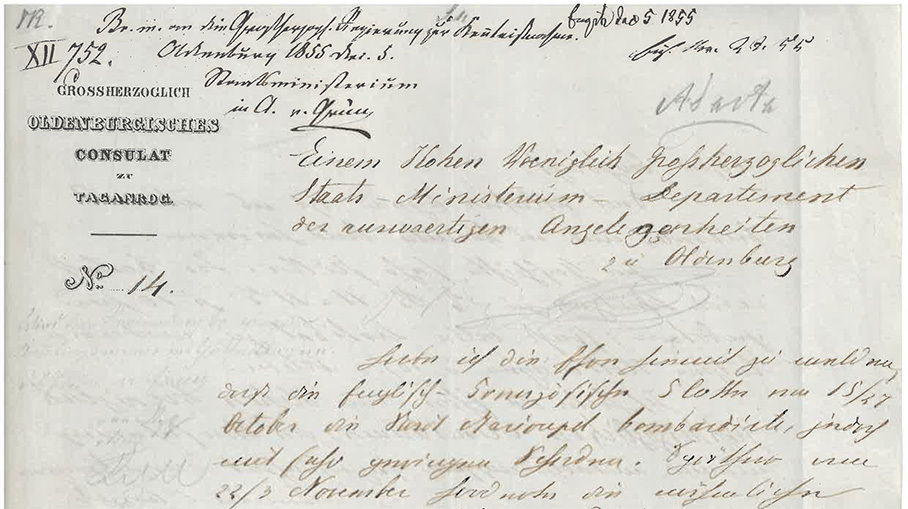 XII 752.
Br. m. an die Großherzogl. Regierung zur Kenntnißnahme.
Oldenburg 1855 Dec. 5.
Staatsministerium
in A. v. Grün
Dec 5 1855
GROSSHERZOGLICH
OLDENBURGISCHES
CONSULAT
ZU
TAGANROG.
No. 14.
Einem Hohen Koeniglich Großherzoglichen
Staats-Ministerium - Departement
der auswertigen Angelegenheiten
zu Oldenburg
habe ich die Ehre hiermit zu melden,
daß die Englisch-Französische Flotte am 15/27
October die Stadt Marioupel bombardirte, jedoch
mit sehr geringem Schaden. Später am
22/3 November die